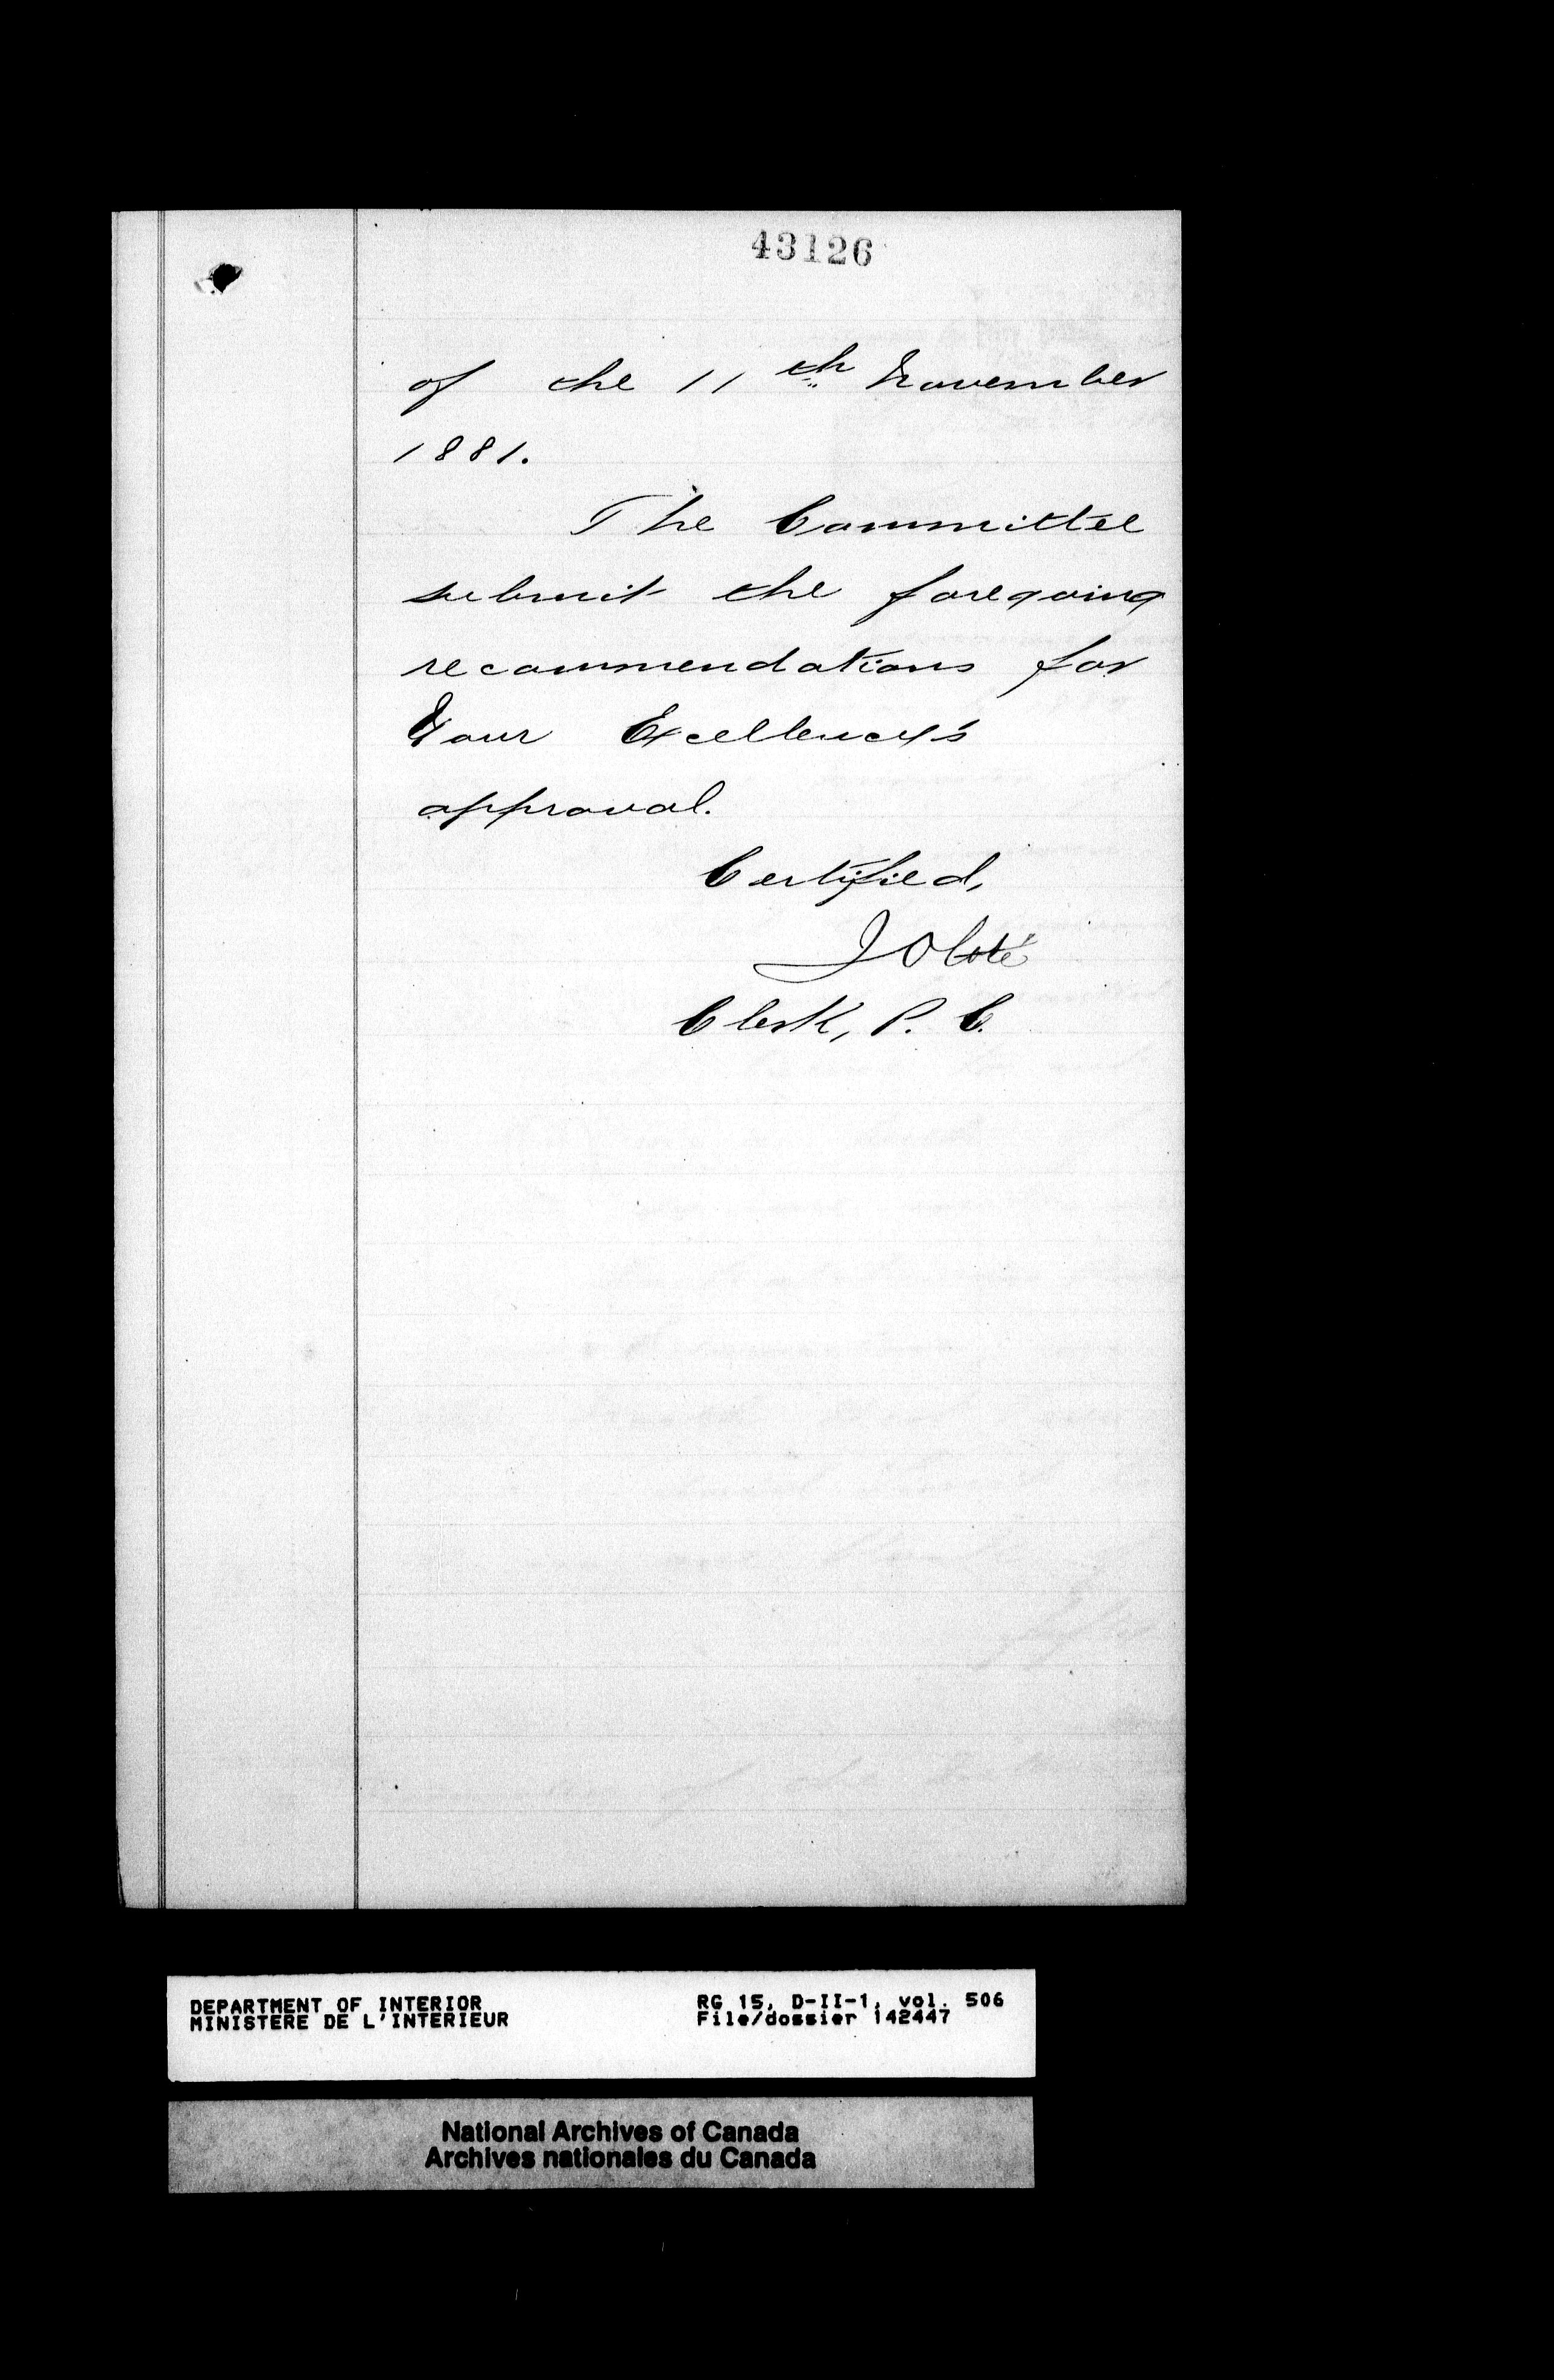 43126
of the 11th November
1881.
The Committee
submit the foregoing
recommendations for
Your Excellency's
approval.
Certified,
J O Coté
Clerk, P. C.
DEPARTMENT OF INTERIOR
MINISTERE DE L'INTERIEUR
RG 15, D-II-1, vol. 506
File/dossier 142447
National Archives of Canada
Archives nationales du Canada